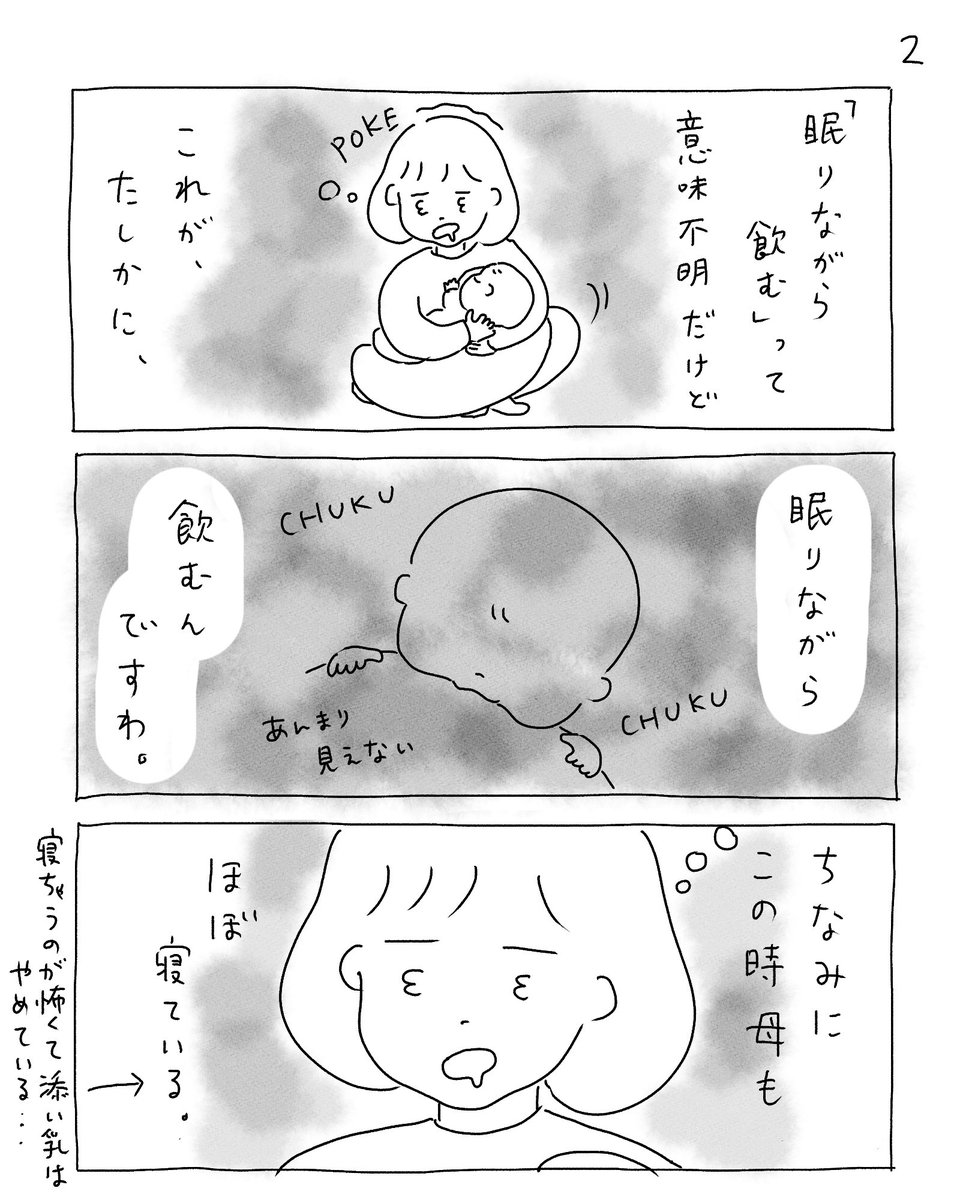 2
「眠りながら
飲む」って
意味不明だけど
POKE
これが、
たしかに、
眠りながら
CHUKU
CHUKU
あんまり
見えない
飲むん
ですわ。
ちなみに
この時母も
ほぼ
寝ている。
寝ちゃうのが怖くて添い乳は
やめている…